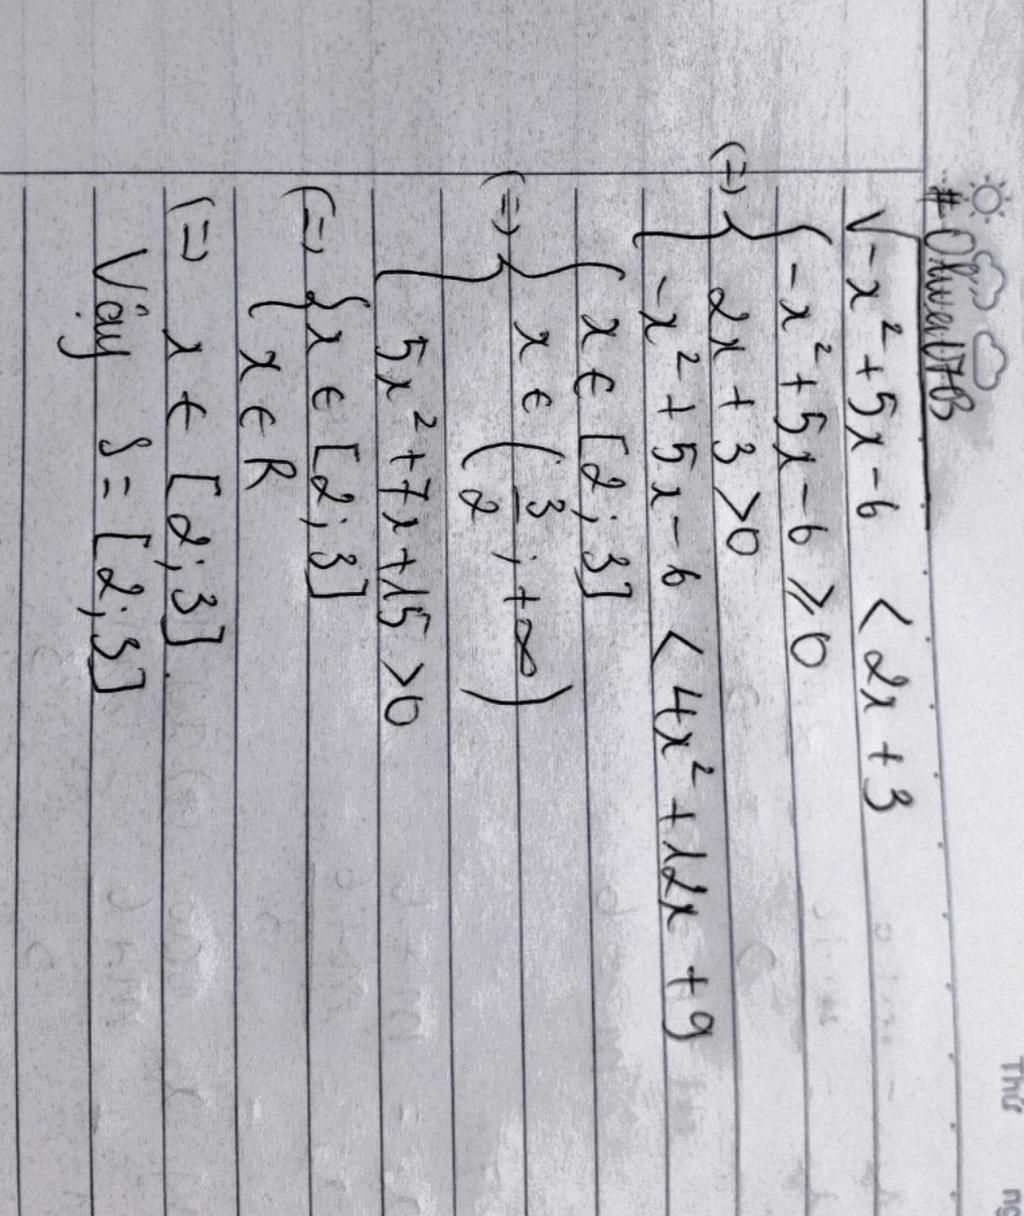 Thứ
#Oliwa1703
√-x²+5x-6 < 2x+3
(=) { -x²+5x-6 ≥ 0
2x+3 >0
-x²+5x-6 < 4x²+12x+9
(=) { x ∈ [2;3]
x ∈ (3/2; +∞)
5x²+7x+15 >0
(=) { x ∈ [2;3]
x ∈ R
(=) x ∈ [2;3]
Vậy S = [2;3]